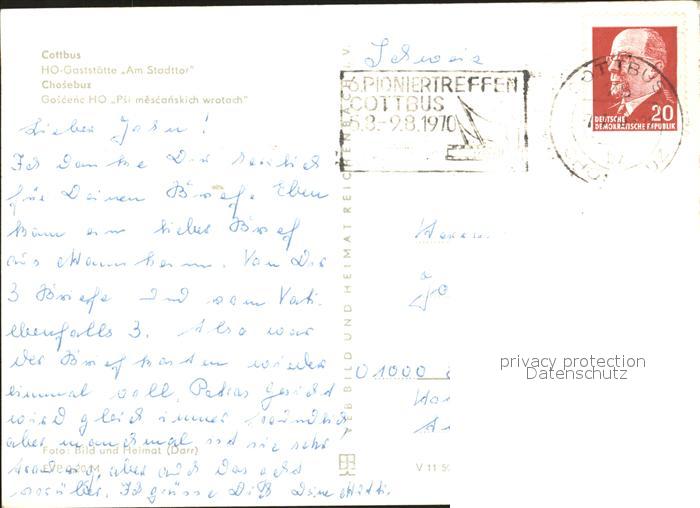 Cottbus
HO-Gaststätte „Am Stadttor"
Chośebuz
Gosćenc HO „Pśi měsćańskich wrotach"
Schweiz
6. PIONIERTREFFEN
COTTBUS
5.8.-9.8.1970
COTTBUS
DEUTSCHE
DEMOKRATISCHE REPUBLIK
20
Lieber John!
Ich danke Dir herzlich
für Deinen Brief. Eben
kam ein lieber Brief
aus Mannheim. Von Dir
3 Briefe und vom Vati
ebenfalls 3. Also war
der Briefkasten wieder
einmal voll. Petras Gesicht
wird gleich immer freundlich
aber manchmal ist sie sehr
traurig, aber auch das geht
vorüber. Ich grüsse Dich Deine Mutti.
Foto: Bild und Heimat (Darr)
VEB BILD UND HEIMAT REICHENBACH I. V.
Herrn
01000
V 11 50
privacy protection
Datenschutz